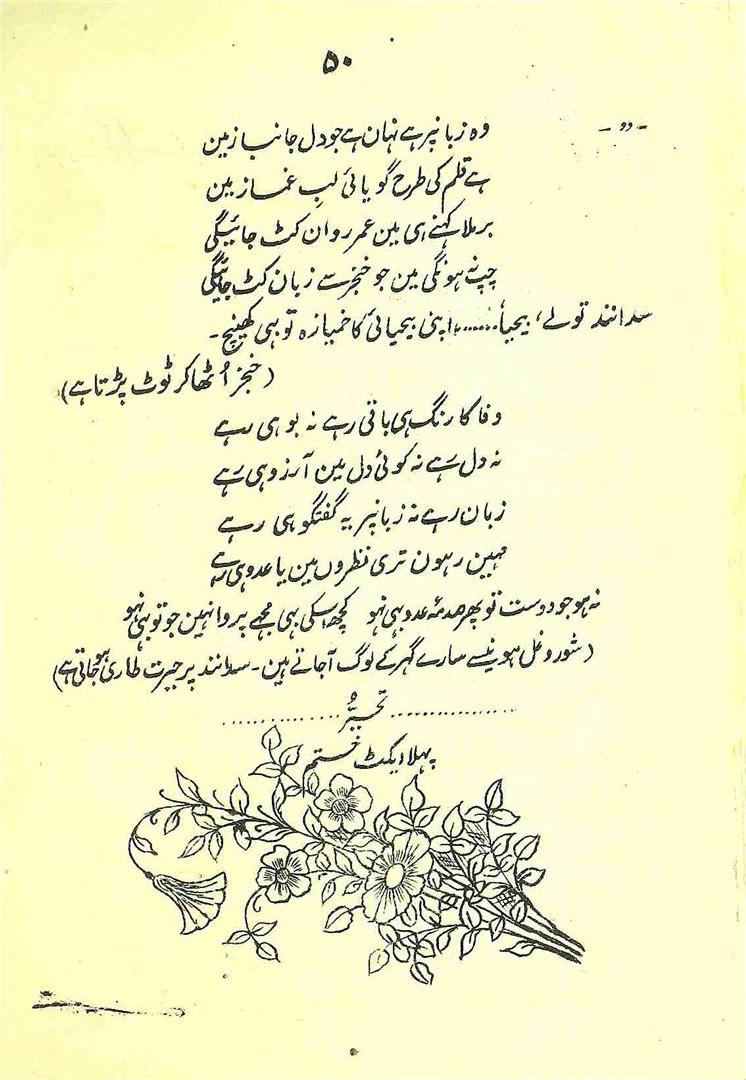 ۵۰
- دو -
وہ زبانپر ہے نہان ہے جو دل جانباز مین
ہے قلم کی طرح گویائی لبِ غماز مین
برملا کہنے ہی مین عمر روان کٹ جائیگی
چپ نہ ہونگی مین جو خنجر سے زبان کٹ جائیگی
سدانند تو لے، بیحیا...... اپنی بیحیائی کا خمیازہ تو ہی کھینچ۔
(خنجز اُٹھا کر ٹوٹ پڑتا ہے)
وفا کا رنگ ہی باقی رہے نہ بو ہی رہے
نہ دل رہے نہ کوئی دل مین آرزو ہی رہے
زبان رہے نہ زبانپر یہ گفتگو ہی رہے
ہمین رہون تری نظروں مین یا عدو ہی رہے
نہ ہو جو دوست تو پھر صدمۂ عدو بہی نہو کچھ اسکی بہی مجہے پروا نہین جو تو بہی نہو
(شور و غل ہونیسے سارے گہر کے لوگ آجاتے ہین۔ سدانند پر حیرت طاری ہوجاتی ہے)
............... تحیّرُ ...............
پہلا ایکٹ ختم